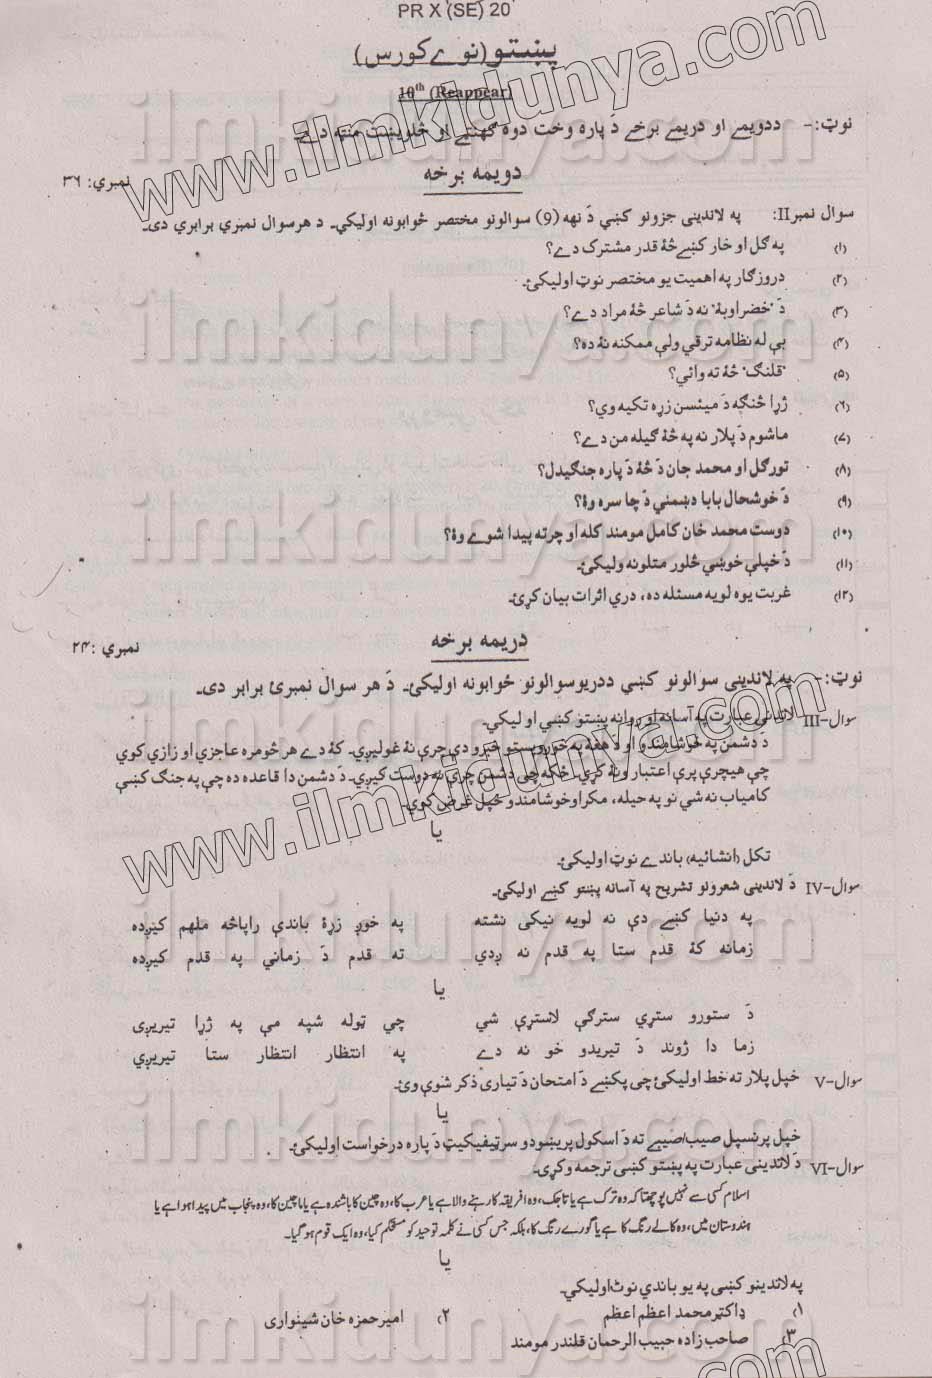 PR X (SE) 20
پښتو (نوے کورس)
10th (Reappear)
نوټ:- ددويمے او دريمے برخے دَ پاره وخت دوه ګهنټے او څلويښت منټه دے۔
دويمه برخه
نمبرې: ۳۶
سوال نمبرII: په لاندينی جزونو کښې دَ نهه (9) سوالونو مختصر ځوابونه اوليکي۔ د هر سوال نمبرې برابرې دی۔
(۱) په ګل او خار کښے څهٔ قدر مشترک دے؟
(۲) د روزګار په اهميت يو مختصر نوټ اوليکئ۔
(۳) دَ "خضر اوبهٔ" نه دَ شاعر څهٔ مراد دے؟
(۴) بې له نظامه ترقي ولې ممکنه نهٔ ده؟
(۵) "قلنګ" څهٔ ته وائي؟
(۶) ژړا څنګه دَ ميئسن زړه تکيه وي؟
(۷) ماشوم دَ پلار نه په څهٔ ګيله من دے؟
(۸) تورګل او محمد جان دَ څهٔ دَ پاره جنګيدل؟
(۹) دَ خوشحال بابا دښمني دَ چا سره وهٔ؟
(۱۰) دوست محمد خان کامل مومند کله او چرته پيدا شوے وهٔ؟
(۱۱) دَ خپلې خوښې څلور متلونه وليکئ۔
(۱۲) غربت يوه لويه مسئله ده، درې اثرات بيان کړئ۔
دريمه برخه
نمبرې: ۲۴
نوټ:- په لاندينی سوالونو کښې ددريو سوالونو ځوابونه اوليکئ۔ دَ هر سوال نمبرئ برابر دی۔
سوال-III لاندينی عبارت په آسانه او روانه پښتو کښې اوليکي۔
دَ دشمن په خوشامندو او دَ هغهٔ په خوږو پستو خبرو دې چرې نهٔ غوليږي۔ کهٔ دے هر څومره عاجزي او زارې کوي
چې هيچرې پرې اعتبار ونهٔ کړي۔ ځکه چې دشمن چرې نه دوست کيږي۔ دَ دشمن دا قاعده ده چې په جنګ کښې
کامياب نه شي نو په حيله، مکر او خوشامندو خپل غرض کوي۔
يا
تکل (انشائيه) باندے نوټ اوليکئ۔
سوال-IV دَ لاندينی شعرونو تشريح په آسانه پښتو کښے اوليکئ۔
په دنيا کښے دې نه لويه نيکی نشته په خوږ زړهٔ باندې راپاڅه ملهم کيږده
زمانه کهٔ قدم ستا په قدم نه ږدي ته قدم دَ زمانې په قدم کيږده
يا
دَ ستورو ستړي سترګې لاسترې شي چي ټوله شپه مې په ژړا تيريږی
زما دا ژوند دَ تيريدو خو نه دے په انتظار انتظار ستا تيريږي
سوال-V خپل پلار ته خط اوليکئ چی پکښے دَ امتحان دَ تياری ذکر شوې وئ۔
يا
خپل پرنسپل صيب/صيبے ته دَ اسکول پريښودو سرټيفيکيټ دَ پاره درخواست اوليکئ۔
سوال-VI دَ لاندينی عبارت په پښتو کښی ترجمه وکړی۔
اسلام کسی سے نہیں پوچھتا کہ وہ ترک ہے یا تاجک، وہ افریقہ کا رہنے والا ہے یا عرب کا، وہ چین کا باشندہ ہے یا ماچین کا، وہ پنجاب میں پیدا ہوا ہے یا
ہندوستان میں، وہ کالے رنگ کا ہے یا گورے رنگ کا، بلکہ جس کسی نے کلمہ توحید کو مستحکم کیا، وہ ایک قوم ہو گیا۔
يا
په لاندينو کښی په يو باندې نوټ اوليکي۔
۱) ډاکټر محمد اعظم اعظم ۲) امير حمزه خان شينواری
۳) صاحب زاده حبيب الرحمان قلندر مومند
www.ilmkidunya.com
ilmkidunya.com
ilmkidunya.com
ilmkidunya.com
www.ilmkidunya.com
ilmkidunya.com
ilmkidunya.com
ilmkidunya.com